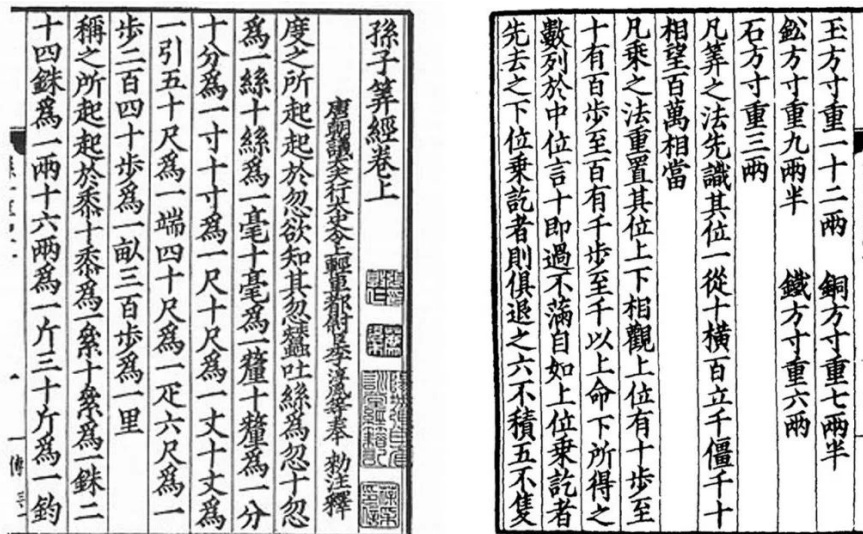 孫子筭經卷上
唐朝議大夫行太史令上輕車都尉臣李淳風等奉 勑注釋
度之所起起於忽欲知其忽蠶吐絲為忽十忽
為一絲十絲為一毫十毫為一釐十釐為一分
十分為一寸十寸為一尺十尺為一丈十丈為
一引五十尺為一端四十尺為一疋六尺為一
步二百四十步為一畝三百步為一里
稱之所起起於黍十黍為一絫十絫為一銖二
十四銖為一兩十六兩為一斤三十斤為一鈞
玉方寸重一十二兩 銅方寸重七兩半
鈆方寸重九兩半 鐵方寸重六兩
石方寸重三兩
凡筭之法先識其位一從十橫百立千僵千十
相望百萬相當
凡乘之法重置其位上下相觀上位有十步至
十有百步至百有千步至千以上命下所得之
數列於中位言十即過不滿自如上位乘訖者
先去之下位乘訖者則俱退之六不積五不隻